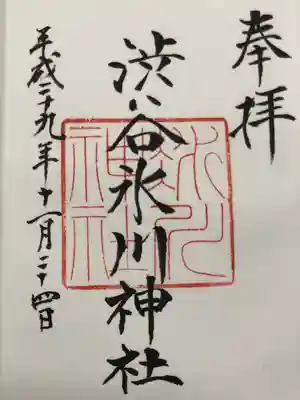 奉拝
渋谷氷川神社
氷川
神社
平成二十九年十一月二十四日